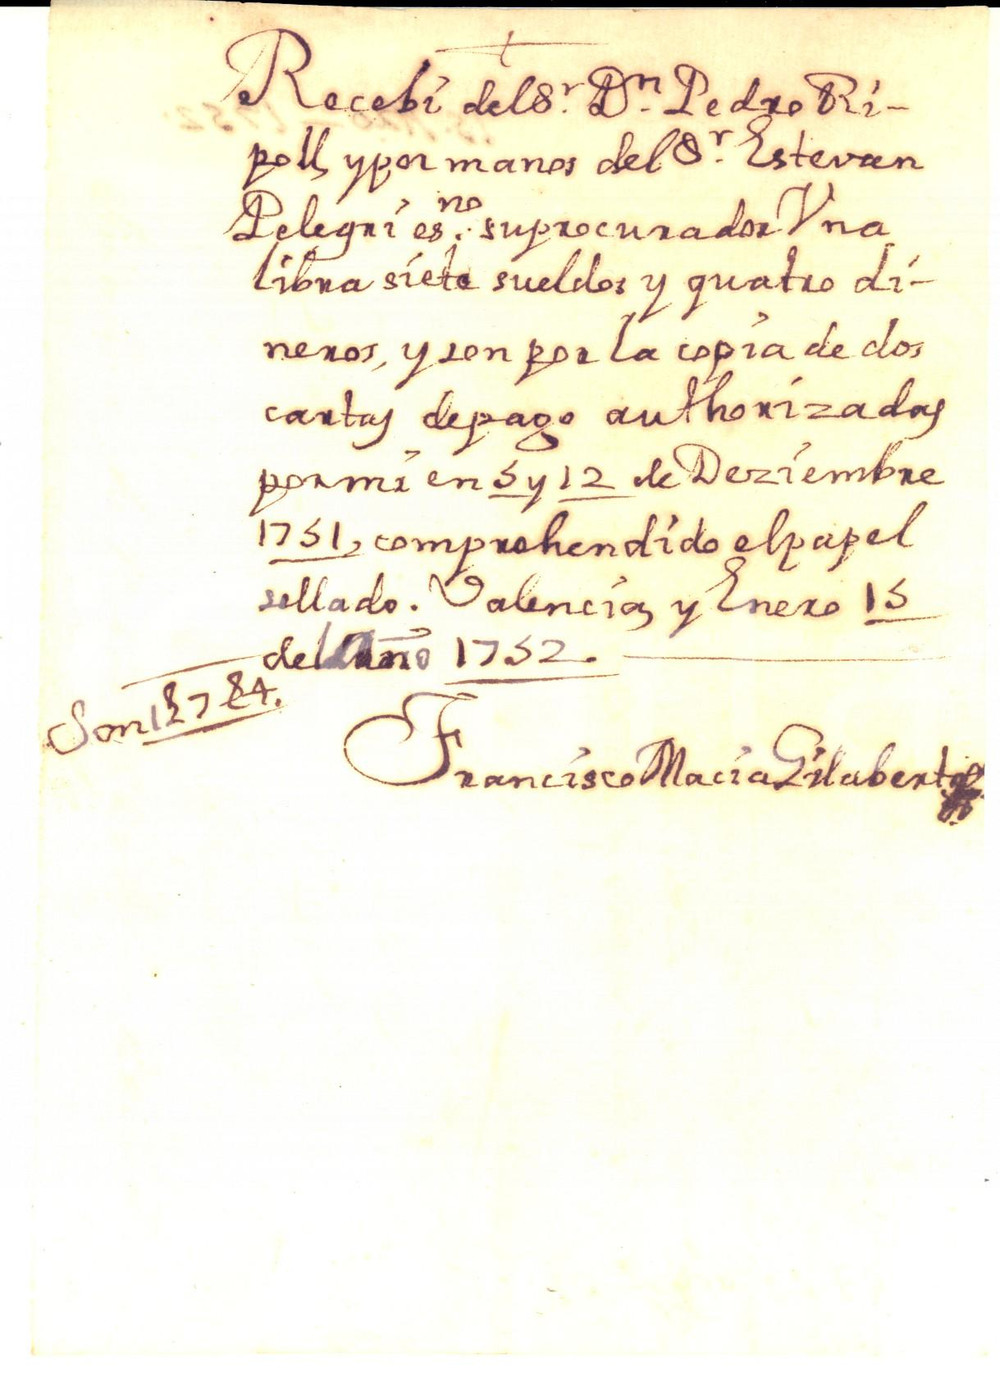 Recebi del Sr. Dn. Pedro Ri-
poll, y por manos del Sr. Estevan
Pelegri esno. su procurador Vna
libra siete sueldos y quatro di-
neros, y son por la copia de dos
cartas de pago authorizadas
por mi en 5 y 12 de Deziembre
1751, comprehendido el papel
sellado. Valencia, y Enero 15
del Año 1752.
Son 1£ 7 S 4.
Francisco Macia Gilabert